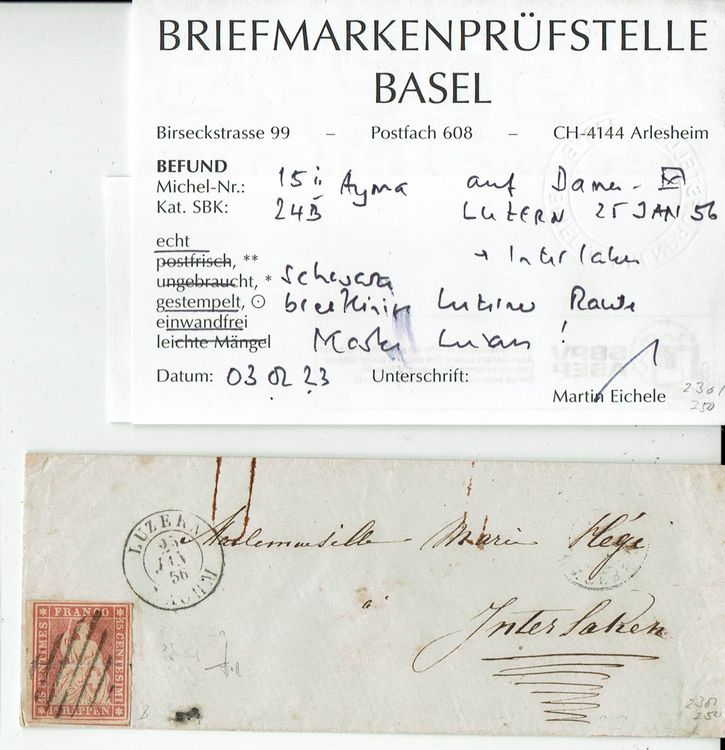 BRIEFMARKENPRÜFSTELLE
BASEL
Birseckstrasse 99 – Postfach 608 – CH-4144 Arlesheim
BEFUND
Michel-Nr.: 15 II Ayma auf Damen-
Kat. SBK: 24B LUZERN 25 JAN 56
echt → Interlaken
postfrisch, **
ungebraucht, * schwarz
gestempelt, ⊙ Luzerner Raute
einwandfrei
leichte Mängel !
Datum: 03 02 23 Unterschrift:
Martin Eichele
2301
250
LUZERN
25
JAN
56
NACHM
Mademoiselle Marie Hégi
à
Interlaken
FRANCO
15 CENTIMES
15 CENTESIMI
15 RAPPEN
B
2301
250